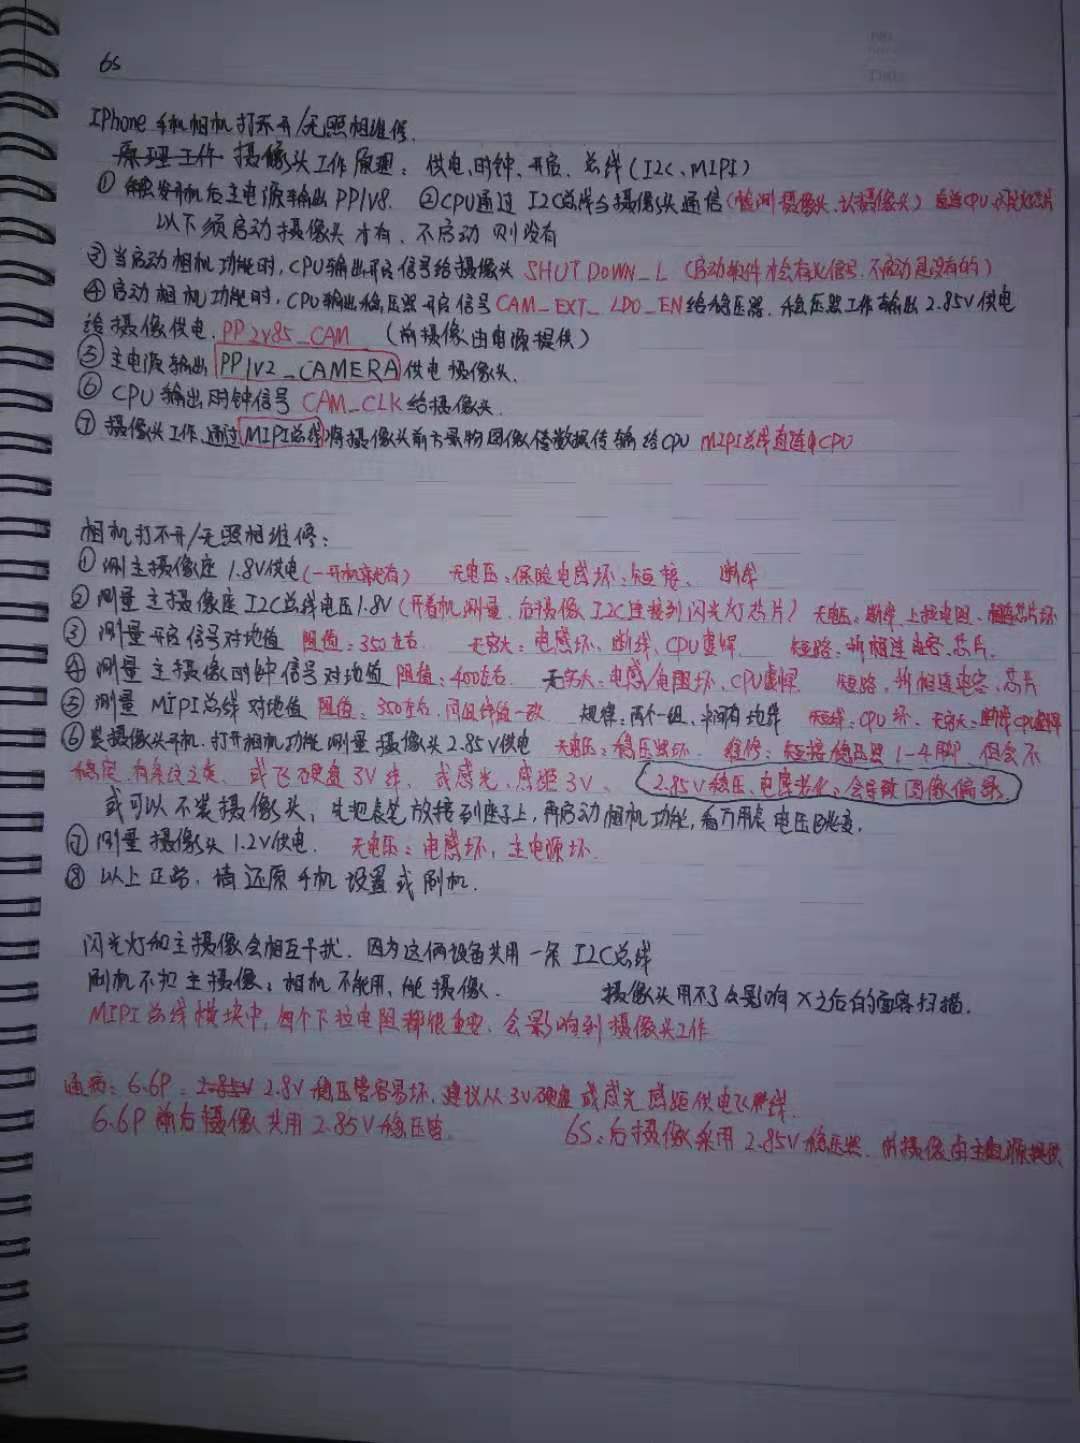 6S
IPhone 手机相机打不开/无照相维修.
原理工作 摄像头工作原理：供电、时钟、开启、总线(I2C、MIPI)
① 触发开机后主电源输出 PP1V8. ②CPU通过 I2C总线与摄像头通信(检测摄像头、认摄像头) CPU
以下须启动摄像头才有、不启动则没有
③ 当启动相机功能时，CPU输出开启信号给摄像头 SHUTDOWN_L (启动软件才会有此信号，不启动是没有的)
④ 启动相机功能时，CPU输出稳压器开启信号 CAM_EXT_LDO_EN给稳压器、稳压器工作输出 2.85V供电
给摄像供电. PP2V85_CAM (前摄像由电源提供)
⑤ 主电源输出 PP1V2_CAMERA 供电摄像头.
⑥ CPU 输出时钟信号 CAM_CLK 给摄像头.
⑦ 摄像头工作、通过MIPI总线将摄像头前方景物图像信数据传输给CPU MIPI总线直连CPU
相机打不开/无照相维修：
① 测主摄像座 1.8V供电(一开机就有) 无电压：保险电感坏：短接、断线
② 测量主摄像座I2C总线电压1.8V(开着机测量，后摄像 I2C连接到闪光灯芯片) 无电压：断线、上拉电阻、芯片坏
③ 测量开启信号对地值 阻值：350左右. 无穷大：电感坏、断线、CPU虚焊. 短路：拆相连电容、芯片.
④ 测量主摄像时钟信号对地值 阻值：400左右. 无穷大：电感/电阻坏、CPU虚焊 短路，拆相连电容、芯片
⑤ 测量 MIPI总线对地值 阻值：350左右，同组线值一致. 规律：两个一组，中间有地线 短路：CPU 坏. 无穷大：断线CPU虚焊
⑥ 装摄像头开机、打开相机功能测量摄像头2.85V供电 无电压：稳压器坏. 维修：短接稳压器 1-4脚，但会不
稳定. 有条纹之类、或飞硬盘3V线、或感光、感距3V、 2.85V稳压、电感老化、会导致图像偏暴.
或可以不装摄像头，先把表笔放接到座子上，再启动相机功能，看万用表电压跳变.
⑦ 测量摄像头1.2V供电. 无电压：电感坏，主电源坏.
⑧ 以上正常，请还原手机设置或刷机.
闪光灯和主摄像会相互干扰. 因为这俩设备共用一条 I2C总线
刷机不扣主摄像：相机不能用、能摄像. 摄像头用不了会影响X之后的面容扫描.
MIPI总线模块中，每个下拉电阻都很重要，会影响到摄像头工作
通病：6.6P：2.85V 2.8V 稳压管容易坏，建议从3V硬盘或感光感距供电飞线.
6.6P 前后摄像共用2.85V稳压管. 6S：后摄像采用 2.85V稳压器. 前摄像由主电源提供